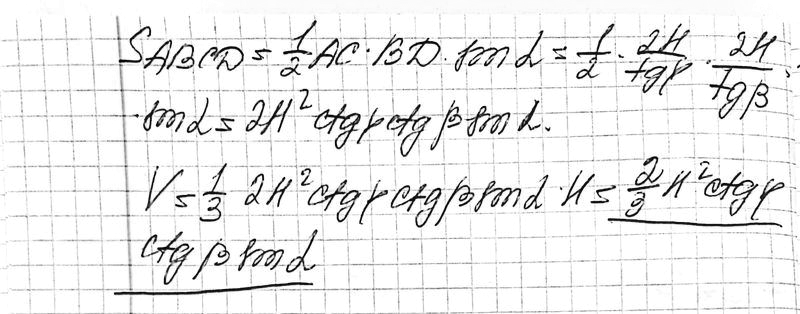 S ABCD = 1/2 AC · BD · sin α = 1/2 · 2H/tgγ · 2H/tgβ ·
· sin α = 2H² ctgγ ctgβ sin α.
V = 1/3 2H² ctgγ ctgβ sin α · H = 2/3 H³ ctgγ
ctgβ sin α